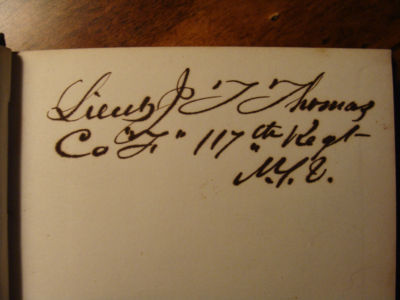 Lieut J T Thomas
Co "F." 117th Regt
N.Y.V.